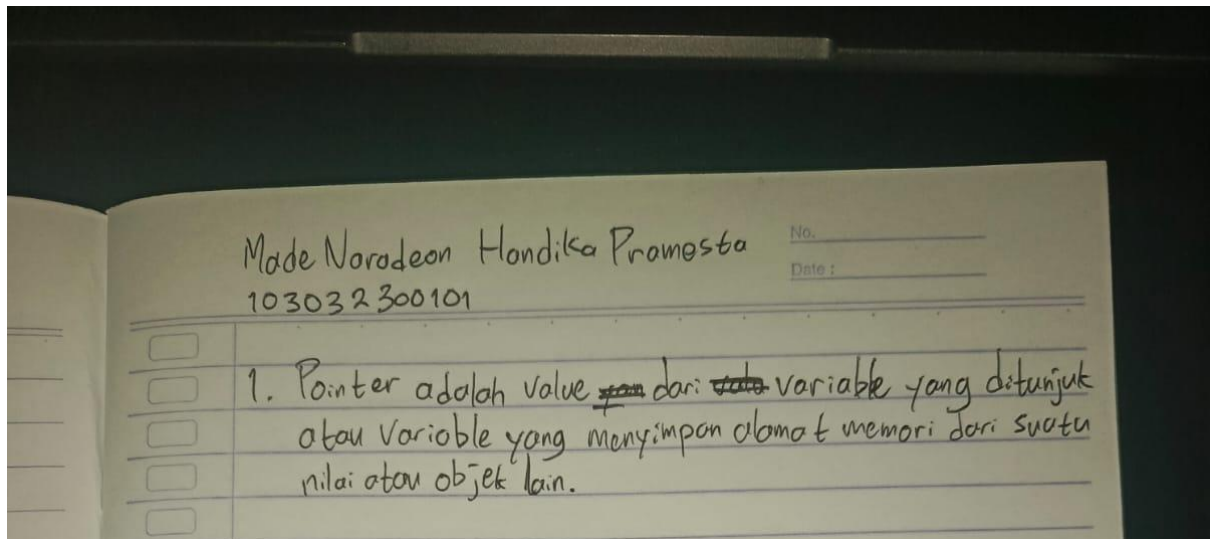 Made Naradeon Handika Pramesta
No.
103032300101
Date :
1. Pointer adalah value dari variable yang ditunjuk
atau Variable yang menyimpan alamat memori dari suatu
nilai atau objek lain.